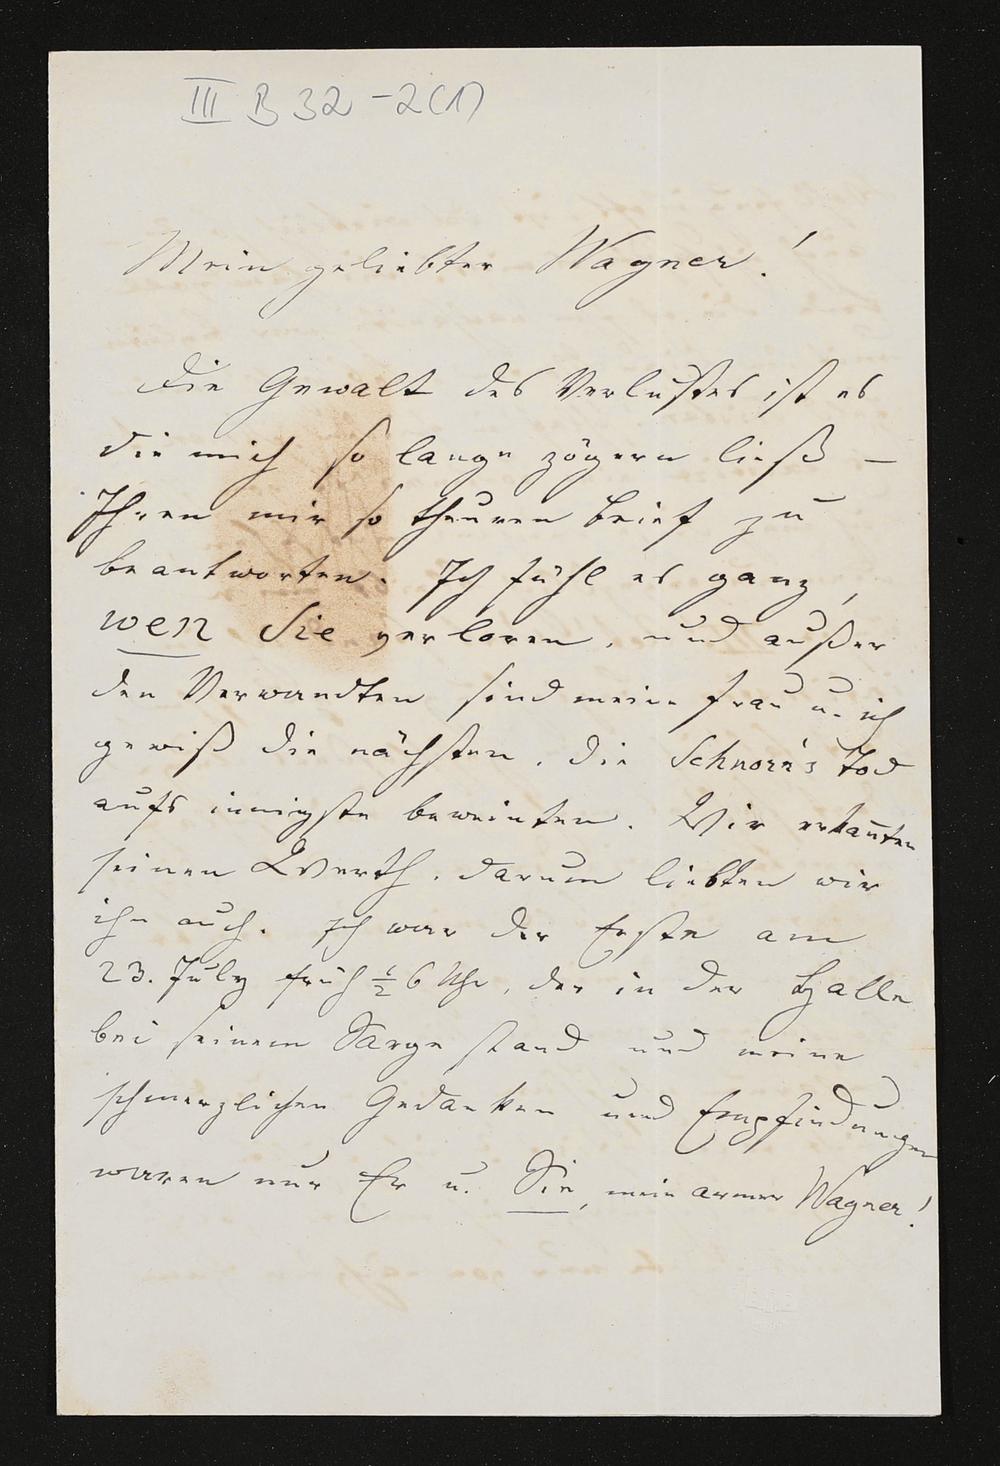 III B 32-2(1)
Mein geliebter Wagner!
Die Gewalt des Verlustes ist es
die mich so lange zögern ließ —
Ihren mir so theuren Brief zu
beantworten. Ich fühl es ganz,
wen Sie verloren, und außer
den Verwandten sind meine Frau u. ich
gewiß die nächsten, die Schnorr's Tod
aufs innigste beweinten. Wir erkan̄ten
seinen Werth, darum liebten wir
ihn auch. Ich war der Erste am
23. July früh ½ 6 Uhr, der in der Halle
bei seinem Sarge stand und meine
schmerzlichen Gedanken und Empfindungen
waren nur Er u. Sie, mein armer Wagner!